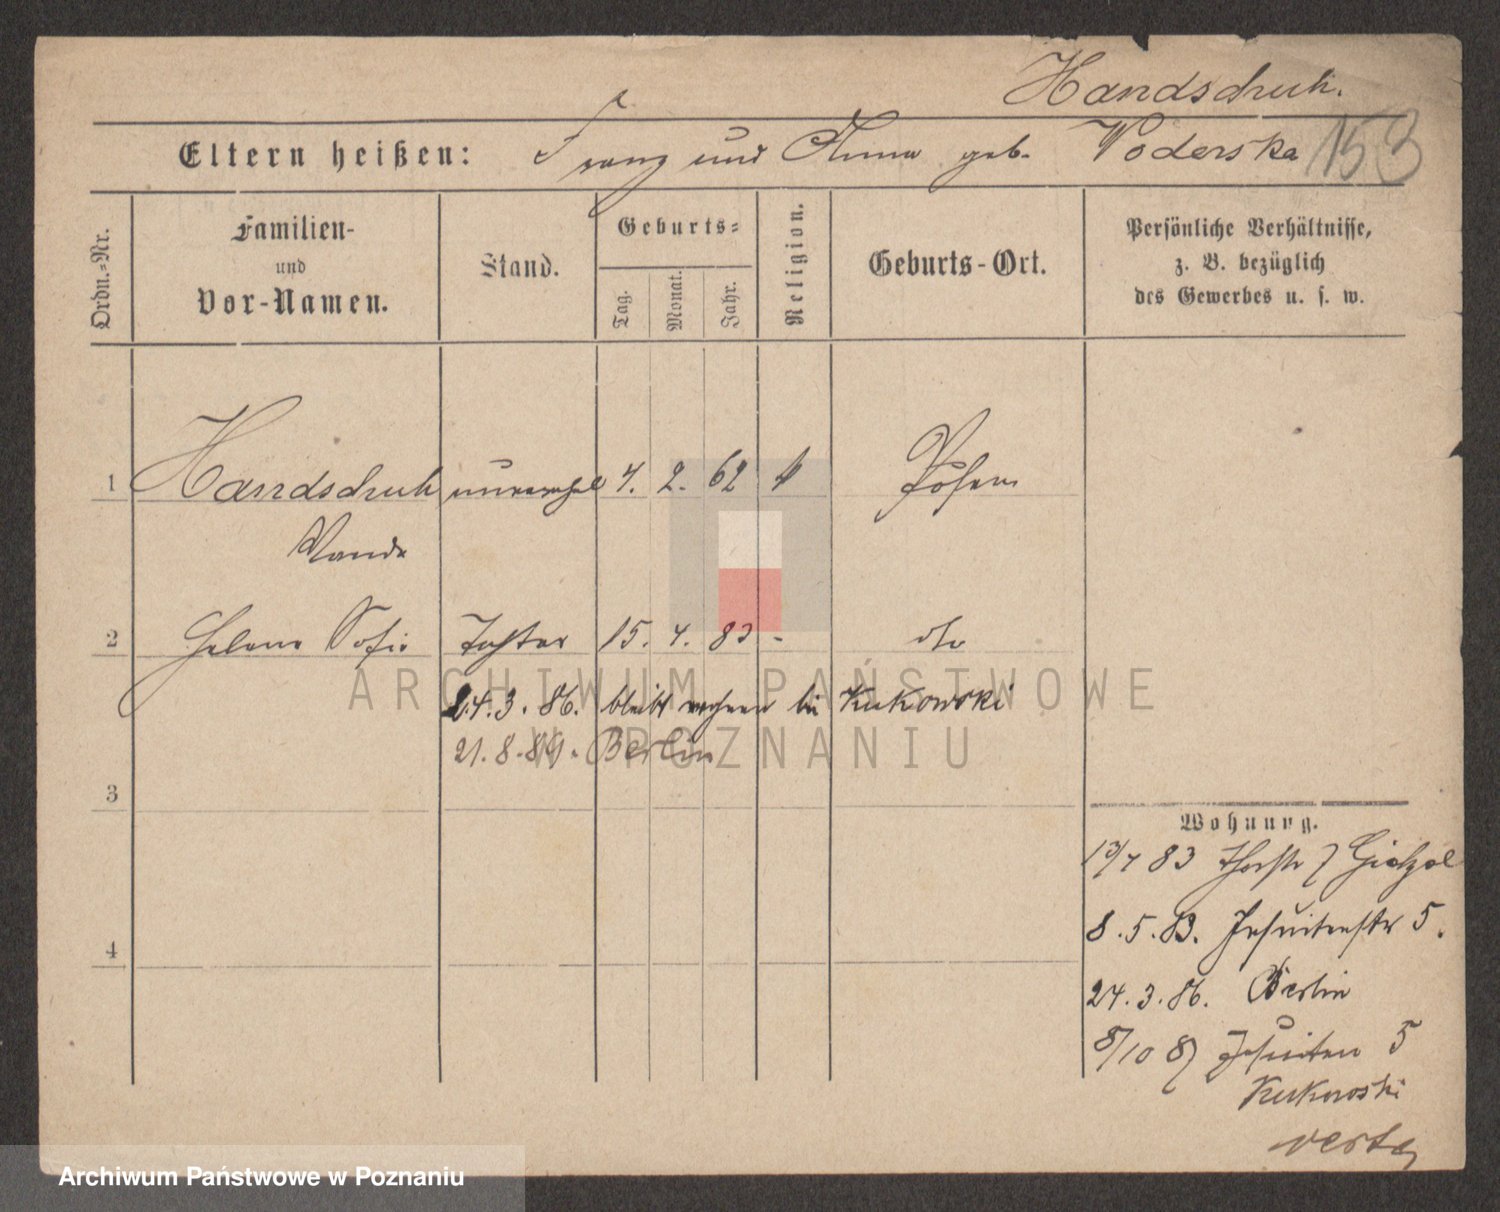 Handschuh.
Eltern heißen: Franz und Anna geb. Voderska 153
Ordn.=Nr.
Familien-
und
Vor-Namen.
Stand.
Geburts=
Tag.
Monat.
Jahr.
Religion.
Geburts-Ort.
Persönliche Verhältnisse,
z. B. bezüglich
des Gewerbes u. s. w.
1 Handschuh unverehel 4. 2. 62 k Posen
Wanda
2 Helene Sofie Tochter 15. 4. 83 - do
24. 3. 86. bleibt wohnen bei Kukowski
21. 8. 89. Berlin
3
4
Wohnung.
13/4 83 7
8. 5. 83. Jesuitenstr 5.
24. 3. 86. Berlin
8/10 87 Jesuiten 5
Kukowski
verte
ARCHIWUM PAŃSTWOWE
W POZNANIU
Archiwum Państwowe w Poznaniu